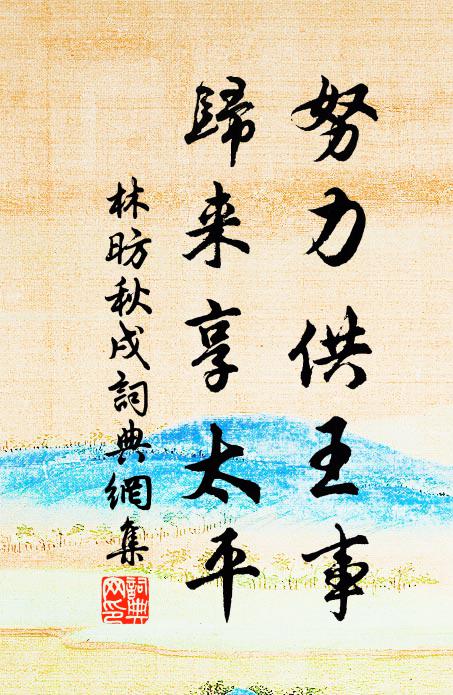 努力供王事
歸来享太平
林昉秋戍詞典網集
詞典